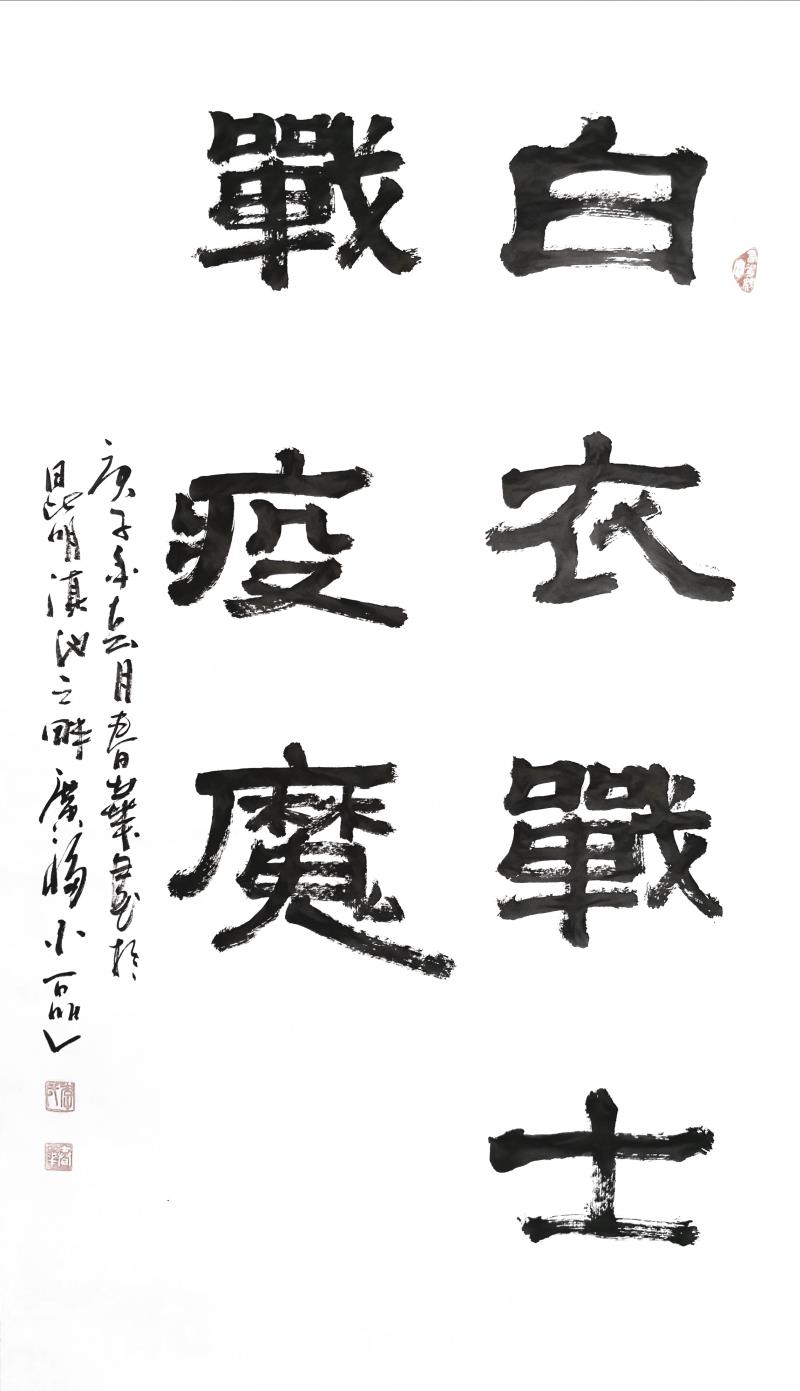 白衣戰士
戰疫魔
庚子年 月春華 於
昆明滇池之畔 小